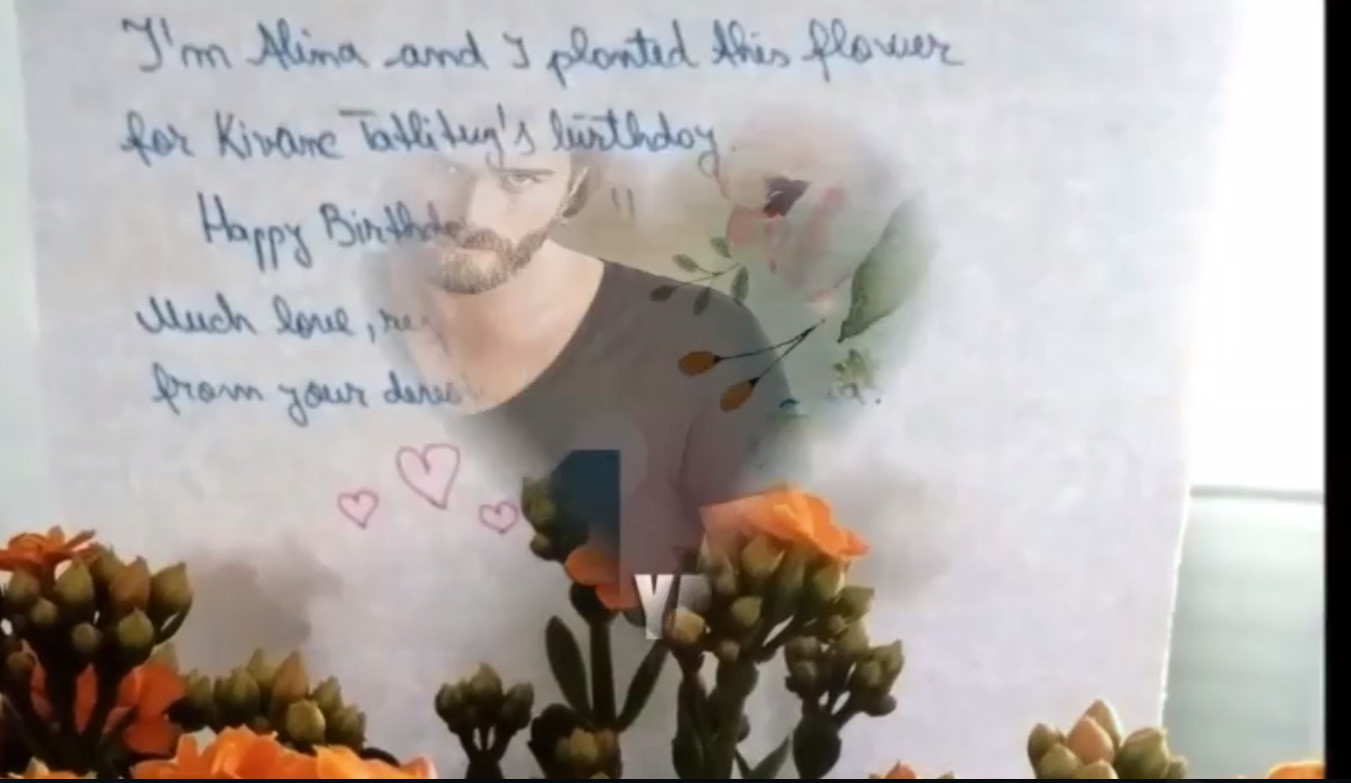 I'm Alina and I planted this flower
for Kivanc Tatlitug's birthday.
Happy Birthda
Much love, re
from your deres
Y